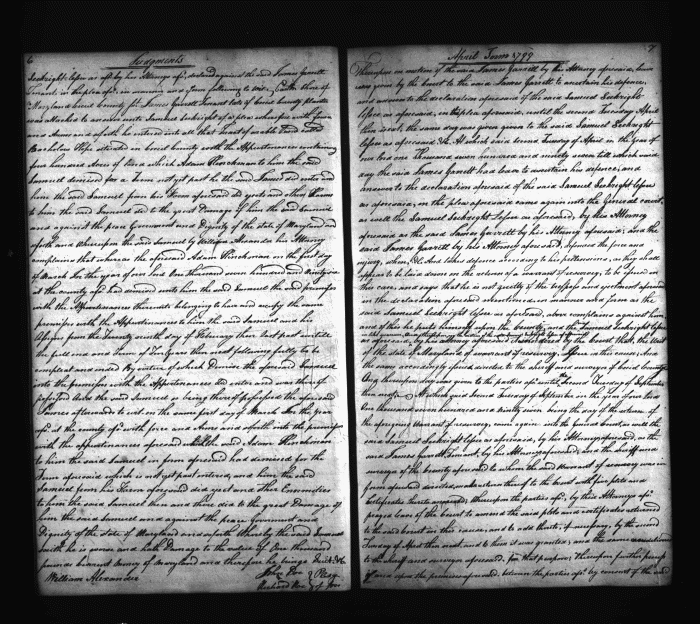 6
Judgments
Seekright lessee as afd by his Attorney afd declared against the said James Garrett
Tenant in the plea afd in manner and form following to wit. Cecil
Maryland
was attached to answer unto Samuel Seekright of a plea wherefore with force
and Arms and so forth he entered into all that
Batchelors Hope situated in Cecil County with the Appurtenances containing
four hundred Acres of Land which Adam Clinchman to him the said
Samuel demised for a Term not yet past he the said James did enter and
him the said Samuel from his Farm aforesaid did eject and other
to him the said Samuel did to the great Damage of him the said Samuel
and against the peace Government and Dignity of the state of Maryland and
so forth and whereupon the said Samuel by William Alexander his Attorney
complains that whereas the aforesaid Adam Clinchman on the first day
of March In the year of our Lord One thousand seven hundred and
at the county afd had demised unto him the said Samuel the said premises
with the Appurtenances thereunto belonging to have and occupy the same
premises with the Appurtenances to him the said Samuel and his
Assigns from the Twenty ninth day of February then last past untill
the full end and Term of Ten Years then next following fully to be
compleat and ended By virtue of which Demise the aforesaid Samuel
into the premises with the Appurtenances did enter and was thereof
possessed And the said Samuel so being thereof possessed the aforesaid
James afterwards to wit on the same first day of March In the year
afd at the county afd with force and Arms and so forth into the premises
with the appurtenances aforesaid which the said Adam Clinchman
to him the said Samuel in form aforesaid had demised for the
Term aforesaid which is not yet past entered, and him the said
Samuel from his Farm aforesaid did eject and other Enormities
to him the said Samuel then and there did to the great Damage of
him the said Samuel and against the peace Government and
Dignity of the state of Maryland and so forth whereby the said Samuel
saith he is worse and hath Damage to the value of One thousand
pounds current money of Maryland and therefore he brings Suit &c
William Alexander
John Doe
Richard Roe
7
April Term 1799
Whereupon on motion of the said James Garrett by his Attorney aforesaid, leave
was given by the Court to the said James Garrett to ascertain his defence,
and answer to the declaration aforesaid of the said Samuel Seekright
lessee as aforesaid, in the plea aforesaid, untill the second Tuesday of April
then next, the same day was given to the said Samuel Seekright
lessee as aforesaid &c. At which said second Tuesday of April in the year of
our Lord One Thousand seven hundred and ninety seven till which said
day the said James Garrett had leave to ascertain his defence, and
answer to the declaration aforesaid of the said Samuel Seekright lessee
as aforesaid, in the plea aforesaid came again into the General court,
as well the Samuel Seekright lessee as aforesaid, by his Attorney
aforesaid as the said James Garrett by his Attorney aforesaid; and the
said James Garrett by his Attorney aforesaid, defends the force and
injury, when, &c. And takes defence according to his pretensions, as they shall
appear to be laid down on the return of a warrant of resurvey, to be issued in
this case, and says that he is not guilty of the trespass and ejectment aforesaid
in the declaration aforesaid mentioned, in manner and form as the
said Samuel Seekright lessee as aforesaid, above complains against him,
and of this he puts himself upon the country; and the Samuel Seekright lessee
as aforesaid, by his attorney aforesaid
of the state of Maryland of warrant of resurvey, issue in this cause; And
the same accordingly issued directed to the sheriff and surveyor of Cecil county.
And thereupon day was given to the parties afd until second Tuesday of September
then next. At which said second Tuesday of September in the year of our Lord
One thousand seven hundred and ninety seven being the day of the return of
the aforesaid Warrant of resurvey, came again into the General Court, as well the
said Samuel Seekright lessee as aforesaid, by his Attorney aforesaid, as the
said James Garrett Tenant, by his Attorney aforesaid; and the sheriff and
surveyor of the county aforesaid to whom the said Warrant of resurvey was in
form aforesaid directed, make return thereof to the Court with fair plots and
certificates thereto annexed; Whereupon the parties afd, by their Attorneys afd,
prayed leave of the Court to amend the said plots and certificates returned
to the said Court in this cause, and to add thereto, if necessary, by the second
Tuesday of April then next, and to them it was granted; and the same
to the sheriff and surveyor aforesaid, for that purpose; Whereupon further process
of and upon the premises aforesaid, between the parties afd, by consent of the said